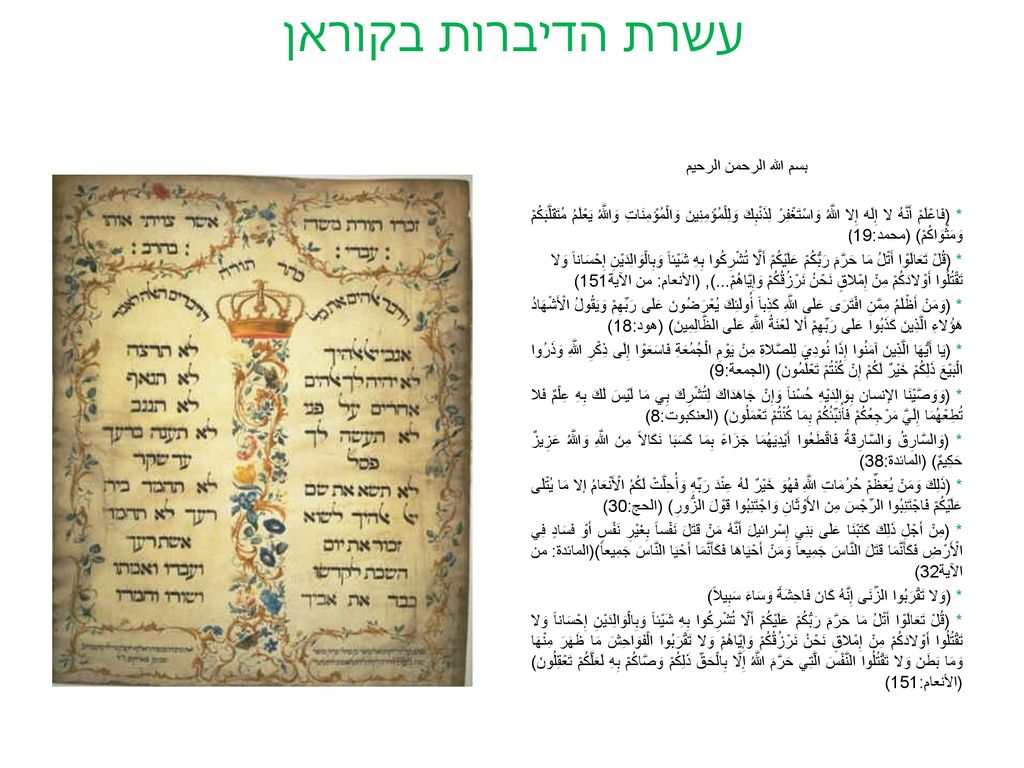 עשרת הדיברות בקוראן
بسم الله الرحمن الرحيم
* (فَاعْلَمْ أَنَّهُ لا إِلَه إلا اللَّهُ وَاسْتَغْفِرْ لِذَنْبِكَ وَلِلْمُؤْمِنِينَ وَالْمُؤْمِنَاتِ وَاللَّهُ يَعْلَمُ مُتَقَلَّبَكُمْ
وَمَثْوَاكُمْ) (محمد:19)
* (قُلْ تَعَالَوْا أَتْلُ مَا حَرَّمَ رَبُّكُمْ عَلَيْكُمْ أَلَّا تُشْرِكُوا بِهِ شَيْئاً وَبِالْوَالِدَيْنِ إِحْسَاناً وَلا
تَقْتُلُوا أَوْلادَكُمْ مِنْ إِمْلاقٍ نَحْنُ نَرْزُقُكُمْ وَإِيَّاهُمْ...), (الأنعام: من الآية151)
* (وَمَنْ أَظْلَمُ مِمَّنِ افْتَرَى عَلَى اللَّهِ كَذِباً أُولَئِكَ يُعْرَضُونَ عَلَى رَبِّهِمْ وَيَقُولُ الْأَشْهَادُ
هَؤُلاءِ الَّذِينَ كَذَبُوا عَلَى رَبِّهِمْ أَلا لَعْنَةُ اللَّهِ عَلَى الظَّالِمِينَ) (هود:18)
* (يَا أَيُّهَا الَّذِينَ آمَنُوا إِذَا نُودِيَ لِلصَّلاةِ مِنْ يَوْمِ الْجُمُعَةِ فَاسَعَوْا إِلَى ذِكْرِ اللَّهِ وَذَرُوا
الْبَيْعَ ذَلِكُمْ خَيْرٌ لَكُمْ إِنْ كُنْتُمْ تَعْلَمُونَ) (الجمعة:9)
* (وَوَصَّيْنَا الإنسان بِوَالِدَيْهِ حُسْناً وَإِنْ جَاهَدَاكَ لِتُشْرِكَ بِي مَا لَيْسَ لَكَ بِهِ عِلْمٌ فَلا
تُطِعْهُمَا إِلَيَّ مَرْجِعُكُمْ فَأُنَبِّئُكُمْ بِمَا كُنْتُمْ تَعْمَلُونَ) (العنكبوت:8)
* (وَالسَّارِقُ وَالسَّارِقَةُ فَاقْطَعُوا أَيْدِيَهُمَا جَزَاءً بِمَا كَسَبَا نَكَالاً مِنَ اللَّهِ وَاللَّهُ عَزِيزٌ
حَكِيمٌ) (المائدة:38)
* (ذَلِكَ وَمَنْ يُعَظِّمْ حُرُمَاتِ اللَّهِ فَهُوَ خَيْرٌ لَهُ عِنْدَ رَبِّهِ وَأُحِلَّتْ لَكُمُ الْأَنْعَامُ إلا مَا يُتْلَى
عَلَيْكُمْ فَاجْتَنِبُوا الرِّجْسَ مِنَ الأَوْثَانِ وَاجْتَنِبُوا قَوْلَ الزُّورِ) (الحج:30)
* (مِنْ أَجْلِ ذَلِكَ كَتَبْنَا عَلَى بَنِي إِسْرائيلَ أَنَّهُ مَنْ قَتَلَ نَفْساً بِغَيْرِ نَفْسٍ أَوْ فَسَادٍ فِي
الْأَرْضِ فَكَأَنَّمَا قَتَلَ النَّاسَ جَمِيعاً وَمَنْ أَحْيَاهَا فَكَأَنَّمَا أَحْيَا النَّاسَ جَمِيعاً)(المائدة: من
الآية32)
* (وَلا تَقْرَبُوا الزِّنَى إِنَّهُ كَان فاحِشَةً وَسَاءَ سَبِيلاً)
* (قُلْ تَعَالَوْا أَتْلُ مَا حَرَّمَ رَبُّكُمْ عَلَيْكُمْ أَلَّا تُشْرِكُوا بِهِ شَيْئاً وَبِالْوَالِدَيْنِ إِحْسَاناً وَلا
تَقْتُلُوا أَوْلادَكُمْ مِنْ إِمْلاقٍ نَحْنُ نَرْزُقُكُمْ وَإِيَّاهُمْ وَلا تَقْرَبُوا الْفَوَاحِشَ مَا ظَهَرَ مِنْهَا
وَمَا بَطَنَ وَلا تَقْتُلُوا النَّفْسَ الَّتِي حَرَّمَ اللَّهُ إِلَّا بِالْحَقِّ ذَلِكُمْ وَصَّاكُمْ بِهِ لَعَلَّكُمْ تَعْقِلُونَ)
(الأنعام:151)
זכרו תורת משה
עבדי :
אשר צויתי אותו
: בחרב :
כתר תורה
וידבר אלהים את כל
הדברים האלה לאמר
אנכי יי אלהיך
לא יהיה לך אלהים
אחרים על פני
לא תעשה לך
פסל
לא תשא את שם
יי אלהיך לשוא
זכור את יום
השבת לקדשו
כבד את אביך
לא תרצח
לא תנאף
לא תגנב
לא תענה ברעך
עד שקר
לא תחמד בית
רעך לא תחמד
אשת רעך
ועבדו ואמתו
ושורו וחמרו